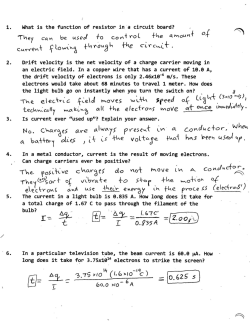 1. What is the function of resistor in a circuit board?
They can be used to control the amount of
current flowing through the circuit.
2. Drift velocity is the net velocity of a charge carrier moving in
an electric field. In a copper wire that has a current of 10.0 A,
the drift velocity of electrons is only 2.46x10⁻⁴ m/s. These
electrons would take about 68 minutes to travel 1 meter. How does
the light bulb go on instantly when you turn the switch on?
The electric field moves with speed of light (3x10⁸ m/s),
technically making all the electrons move at once immediately.
3. Is current ever "used up"? Explain your answer.
No. Charges are always present in a conductor. When
a battery dies, it is the voltage that has been used up.
4. In a metal conductor, current is the result of moving electrons.
Can charge carriers ever be positive?
The positive charges do not move in a conductor.
They sort of vibrate to stop the motion of
electrons and use their energy in the process (electrons')
5. The current in a light bulb is 0.835 A. How long does it take for
a total charge of 1.67 C to pass through the filament of the
bulb?
I = Δq/t t = Δq/I = 1.67C/0.835A = 2.00s
6. In a particular television tube, the beam current is 60.0 μA. How
long does it take for 3.75x10¹⁴ electrons to strike the screen?
t = Δq/I = 3.75×10¹⁴ (1.6×10⁻¹⁹C)/60.0 ×10⁻⁶A = 0.625 s